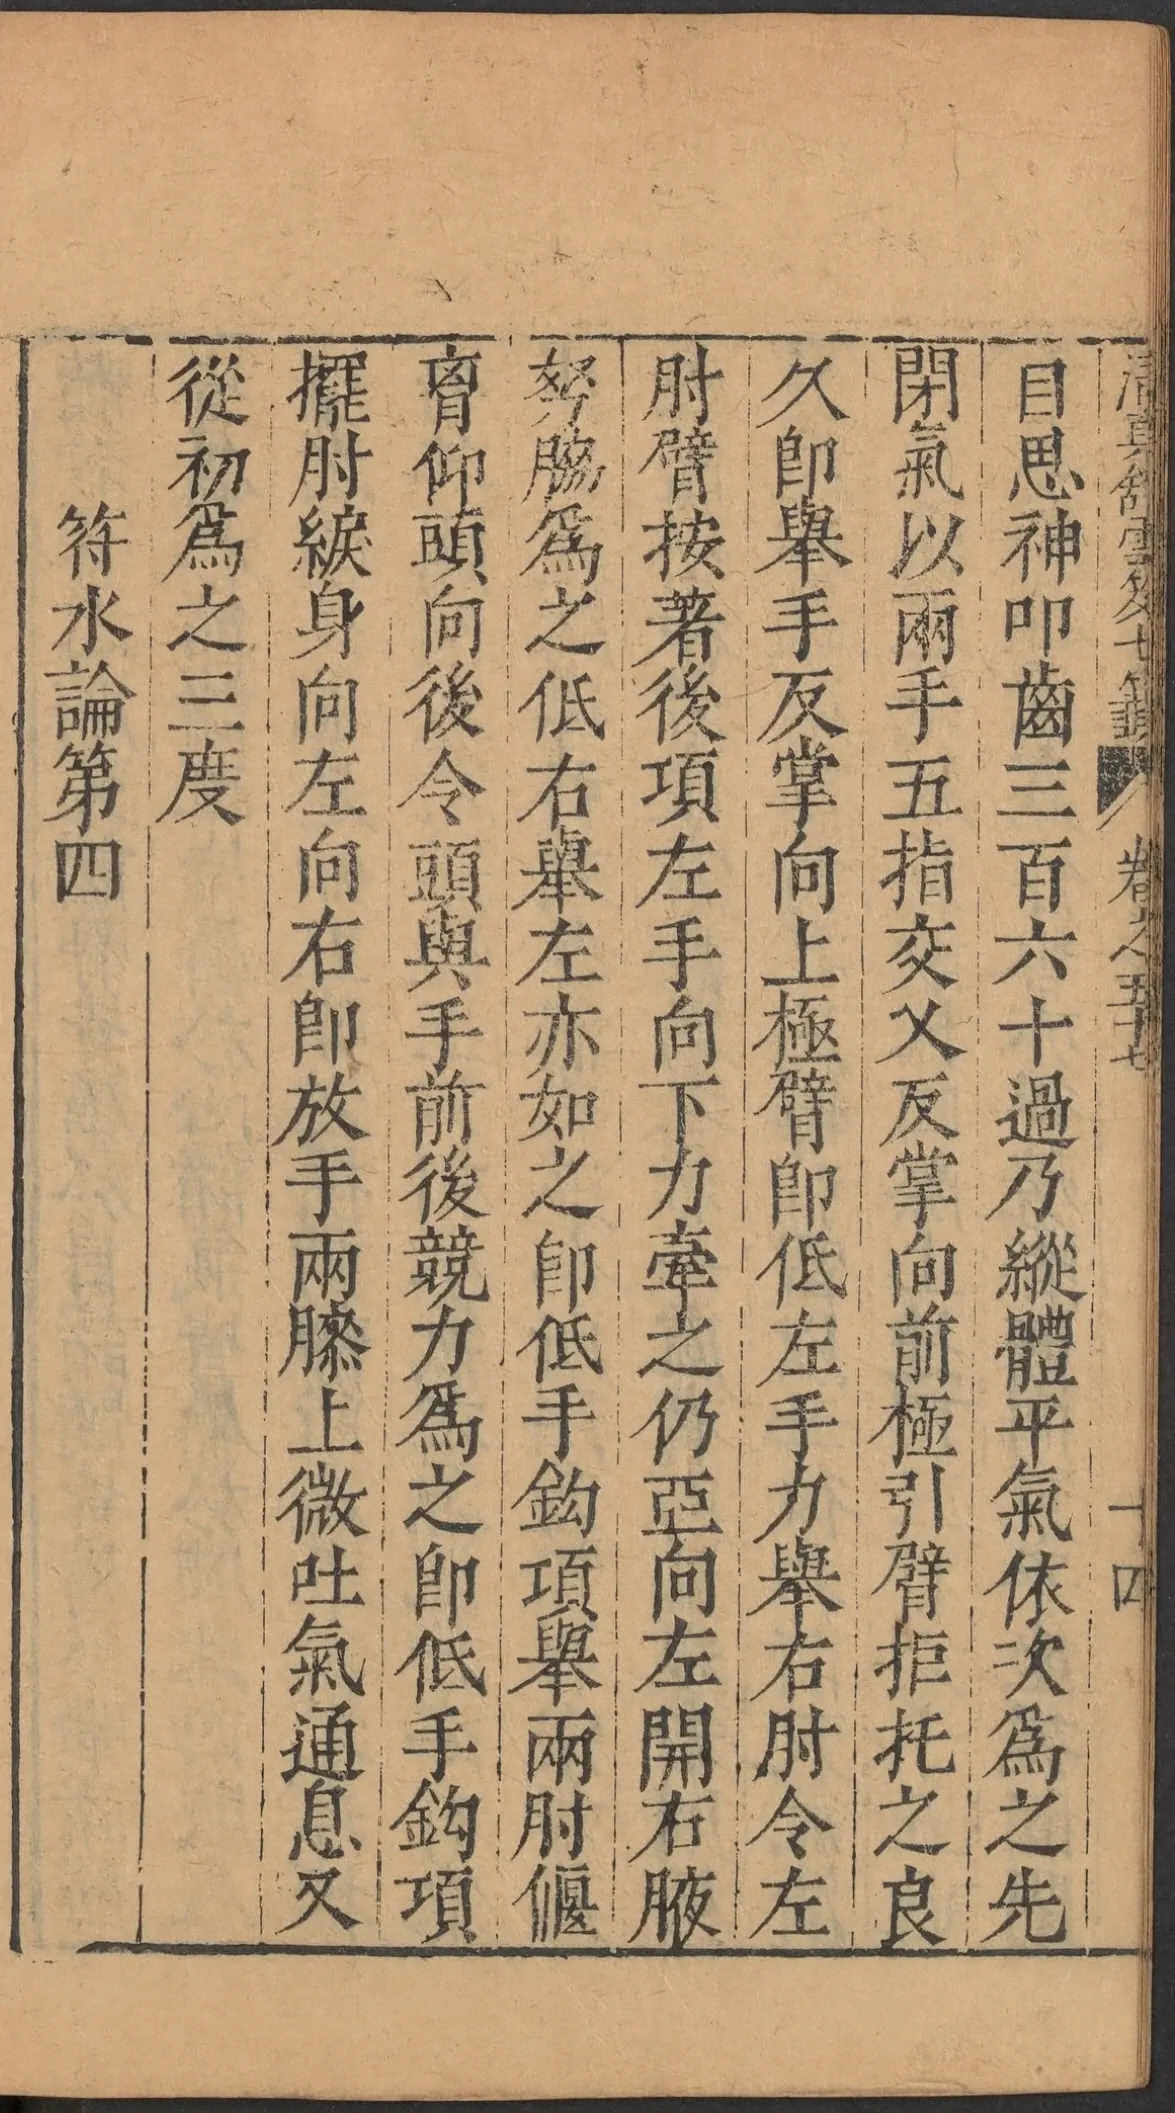 清真館雲笈七籤 卷之五十七 十四
目思神叩齒三百六十過乃縱體平氣依次爲之先
閉氣以兩手五指交叉反掌向前極引臂拒托之良
久卽舉手反掌向上極臂卽低左手力舉右肘令左
肘臂按著後項左手向下力牽之仍亞向左開右腋
努脇爲之低右舉左亦如之卽低手鈎項舉兩肘偃
胷仰頭向後令頭與手前後競力爲之卽低手鈎項
擺肘綟身向左向右卽放手兩膝上微吐氣通息又
從初爲之三度
符水論第四